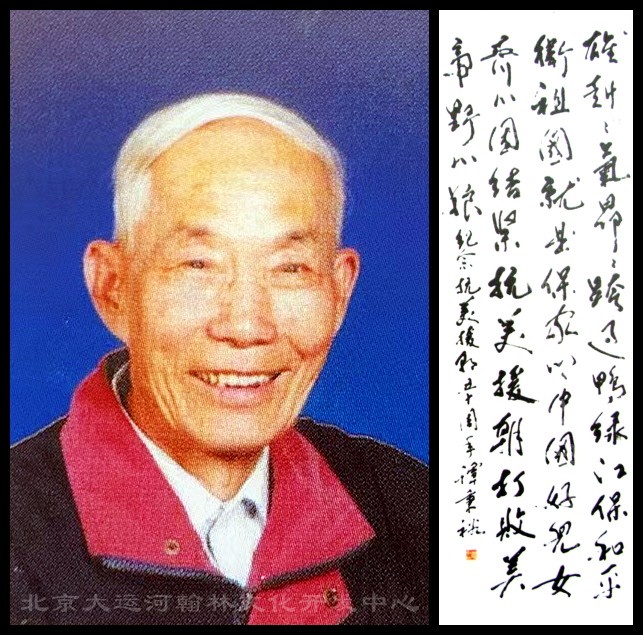 雄赳〻氣昂〻跨过鸭绿江保和平
衛祖國就是保家乡中國好兒女
齐心团结紧抗美援朝打败美
帝野心狼 纪念抗美援朝五十周年譚秉
北京大运河翰林文化开发中心